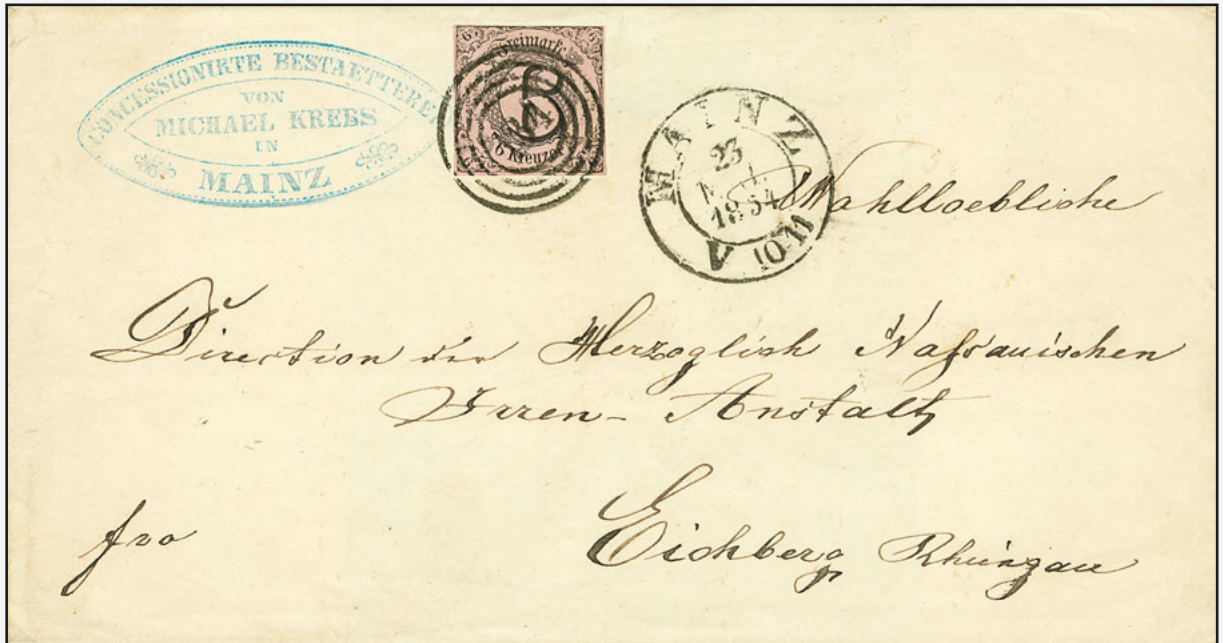 CONCESSIONIRTE BESTAETTEREI
VON
MICHAEL KREBS
IN
MAINZ
6
Freimarke
6
6 Kreuzer
MAINZ
23
1854
10-11
Wohlloebliche
Direction der Herzoglich Nassauischen
Irren-Anstalt
fro
Eichberg Rheingau